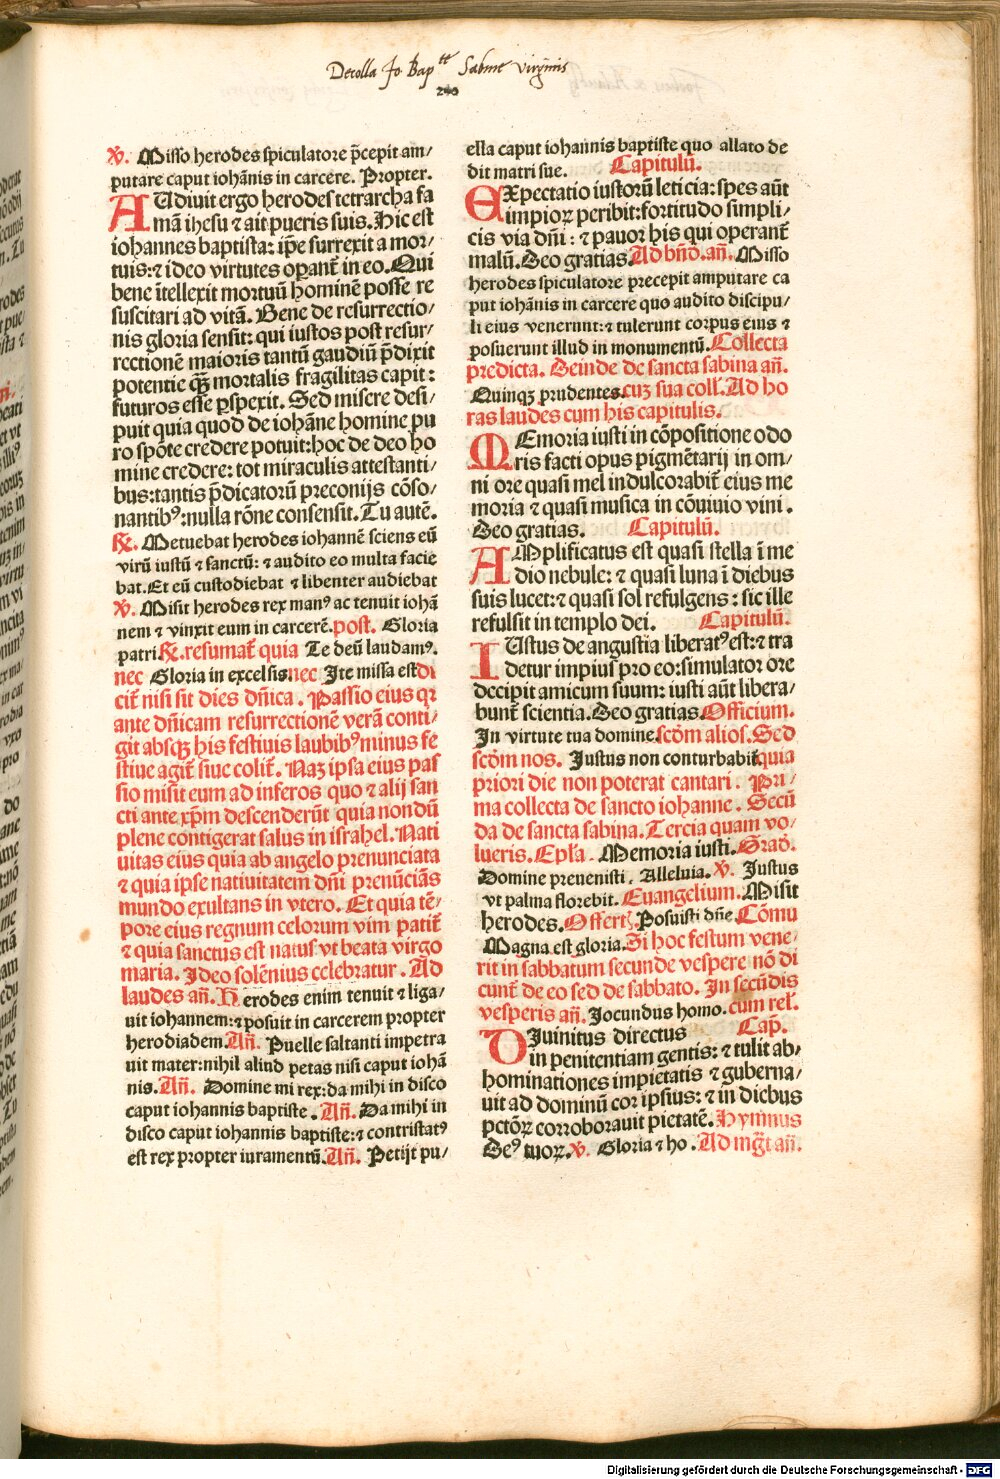 Decolla Jo Bap^te Sabine virginis
240
℣. Misso herodes spiculatore p̄cepit am/
putare caput ioh̄anis in carcere. Propter.
AUdiuit ergo herodes tetrarcha fa
mā ihesu ⁊ ait pueris suis. Hic est
iohannes baptista: ip̄e surrexit a mor/
tuis:⁊ ideo virtutes oꝑant̄ in eo. Qui
bene ītellexit mortuū hominē posse re
suscitari ad vitā. Bene de resurrectio/
nis gloria sensit: qui iustos post resur/
rectionē maioris tantū gaudiū p̄dixit
potentie qꝫ̄ mortalis fragilitas capit:
futuros esse ꝑspexit. Sed misere desi/
puit quia quod de iohāne homine pu
ro spōte credere potuit: hoc de deo ho
mine credere: tot miraculis attestanti/
bus: tantis p̄dicatorū preconijs cōso/
nantibꝰ: nulla rōne consensit. Tu autē.
℟. Metuebat herodes iohannē sciens eū
virū iustū ⁊ sanctū: ⁊ audito eo multa facie
bat. Et eū custodiebat ⁊ libenter audiebat
℣. Misit herodes rex manꝰ ac tenuit iohā
nem ⁊ vinxit eum in carcerē. post. Gloria
patri ℟. resumat̄ quia Te deū laudamꝰ.
nec Gloria in excelsis nec Ite missa est di
cit̄ nisi sit dies dn̄ica. Passio eius qꝛ
ante dn̄icam resurrectionē verā conti/
git absqꝫ his festiuis laubibꝰ minus fe
stiue agit̄ siue colit̄. Naꝫ ipsa eius pas
sio misit eum ad inferos quo ⁊ alij san
cti ante xp̄m descenderūt quia nondū
plene contigerat salus in israhel. Nati
uitas eius quia ab angelo prenunciata
⁊ quia ipse natiuitatem dn̄i prenūciās
mundo exultans in vtero. Et quia tē/
pore eius regnum celorum vim patit̄
⁊ quia sanctus est natus vt beata virgo
maria. Ideo solēnius celebratur. Ad
laudes an̄. Herodes enim tenuit ⁊ liga/
uit iohannem:⁊ posuit in carcerem propter
herodiadem. An̄. Puelle saltanti impetra
uit mater: nihil aliud petas nisi caput iohā
nis. An̄. Domine mi rex: da mihi in disco
caput iohannis baptiste. An̄. Da mihi in
disco caput iohannis baptiste:⁊ contristatꝰ
est rex propter iuramentū. An̄. Petijt pu/
ella caput iohannis baptiste quo allato de
dit matri sue. Capitulū.
EXpectatio iustorū leticia: spes aūt
impioꝝ peribit: fortitudo simpli/
cis via dn̄i: ⁊ pauor his qui operant̄
malū. Deo gratias. Ad bn̄d. an̄. Misso
herodes spiculatore precepit amputare ca
put ioh̄anis in carcere quo audito discipu/
li eius venerunt:⁊ tulerunt corpus eius ⁊
posuerunt illud in monumentū. Collecta
predicta. Deinde de sancta sabina an̄.
Quinqꝫ prudentes. cuꝫ sua coll̄. Ad ho
ras laudes cum his capitulis.
MEmoria iusti in cōpositione odo
ris facti opus pigmētarij in om/
ni ore quasi mel indulcorabit̄ eius me
moria ⁊ quasi musica in cōuiuio vini.
Deo gratias. Capitulū.
AMplificatus est quasi stella ī me
dio nebule: ⁊ quasi luna ī diebus
suis lucet:⁊ quasi sol refulgens: sic ille
refulsit in templo dei. Capitulū.
IUstus de angustia liberatꝰ est:⁊ tra
detur impius pro eo: simulator ore
decipit amicum suum: iusti aūt libera/
bunt̄ scientia. Deo gratias. Officium.
In virtute tua domine. scd̄m alios. Sed
scd̄m nos. Justus non conturbabit̄ quia
priori die non poterat cantari. Pri/
ma collecta de sancto iohanne. Secū
da de sancta sabina. Tercia quam vo/
lueris. Epl̄a. Memoria iusti. Grad̄.
Domine preuenisti. Alleluia. ℣. Justus
vt palma florebit. Euangelium. Misit
herodes. Offert̄. Posuisti dn̄e. Cōmu
Magna est gloria. Si hoc festum vene/
rit in sabbatum secunde vespere nō di
cunt̄ de eo sed de sabbato. In secūdis
vesperis an̄. Jocundus homo. cum rel̄.
DIuinitus directus Cap̄.
in penitentiam gentis: ⁊ tulit ab/
hominationes impietatis ⁊ guberna/
uit ad dominū cor ipsius: ⁊ in diebus
pctōꝝ corroborauit pictatē. Hymnus
Deꝰ tuoꝝ. ℣. Gloria ⁊ ho. Ad mḡt an̄.
Digitalisierung gefördert durch die Deutsche Forschungsgemeinschaft - DFG